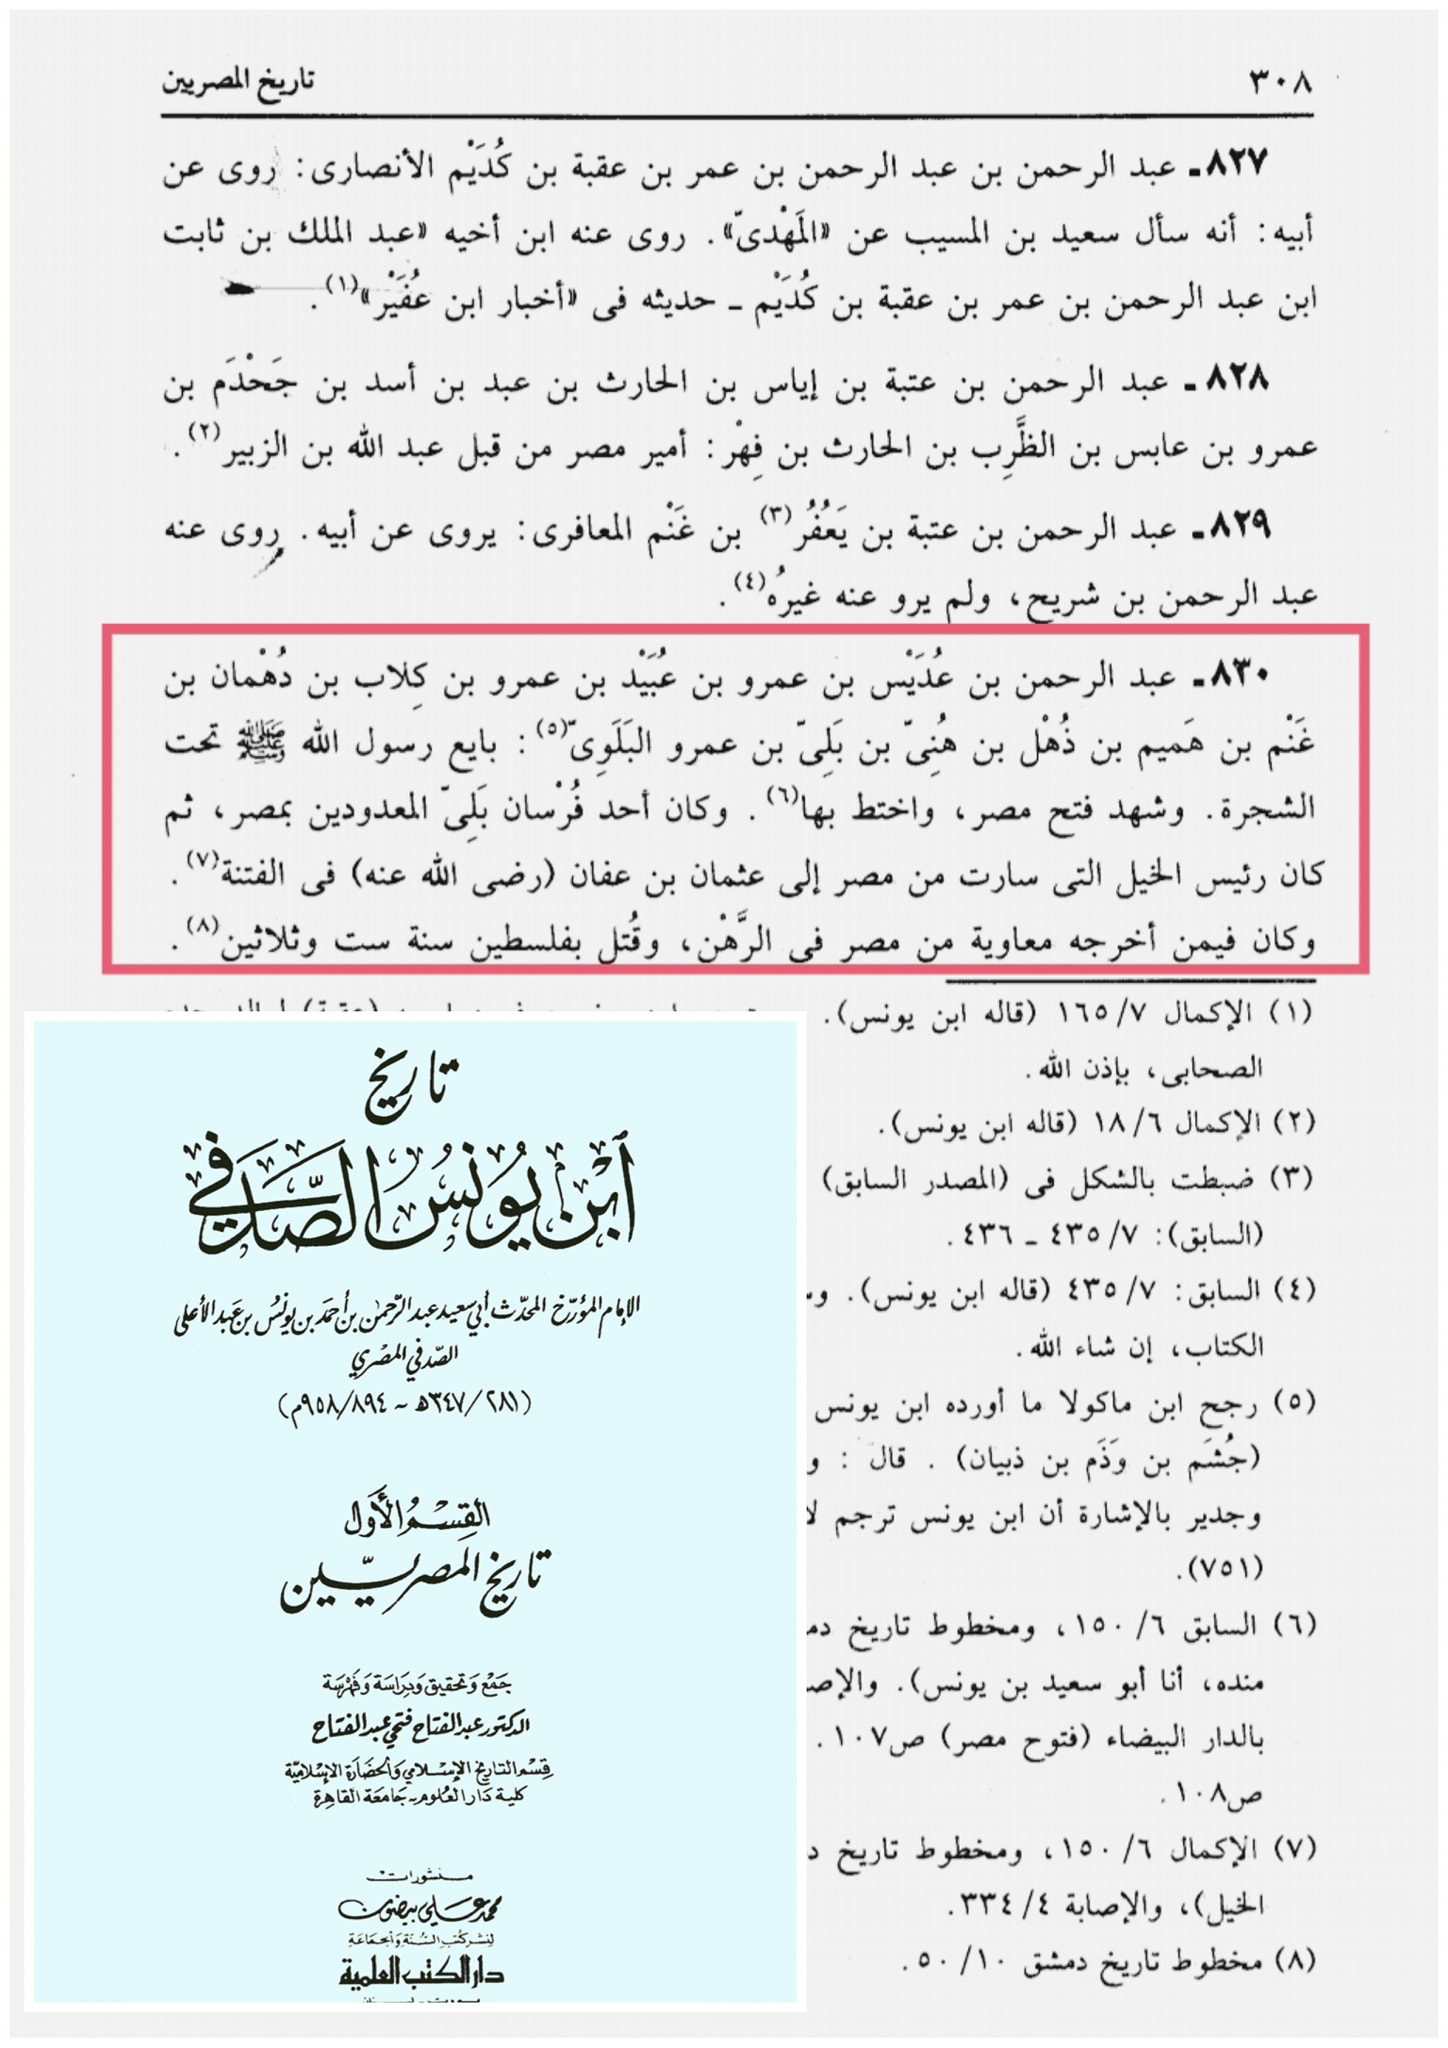 ٣٠٨
تاريخ المصريين
٨٢٧ـ عبد الرحمن بن عبد الرحمن بن عمر بن عقبة بن كُدَيْم الأنصارى: روى عن
أبيه: أنه سأل سعيد بن المسيب عن «المَهْدىّ». روى عنه ابن أخيه «عبد الملك بن ثابت
ابن عبد الرحمن بن عمر بن عقبة بن كُدَيْم ـ حديثه فى «أخبار ابن عُفَيْر»(١).
٨٢٨ـ عبد الرحمن بن عتبة بن إياس بن الحارث بن عبد بن أسد بن جَحْدَم بن
عمرو بن عابس بن الظَّرِب بن الحارث بن فِهْر: أمير مصر من قبل عبد الله بن الزبير(٢).
٨٢٩ـ عبد الرحمن بن عتبة بن يَعْفُر(٣) بن غَنْم المعافرى: يروى عن أبيه. روى عنه
عبد الرحمن بن شريح، ولم يرو عنه غيرُه(٤).
٨٣٠ـ عبد الرحمن بن عُدَيْس بن عمرو بن عُبَيْد بن عمرو بن كِلاب بن دُهْمان بن
غَنْم بن هَميم بن ذُهْل بن هُنِىّ بن بَلِىّ بن عمرو البَلَوِىّ(٥): بايع رسول الله ﷺ تحت
الشجرة. وشهد فتح مصر، واختط بها(٦). وكان أحد فُرْسان بَلِىّ المعدودين بمصر، ثم
كان رئيس الخيل التى سارت من مصر إلى عثمان بن عفان (رضى الله عنه) فى الفتنة(٧).
وكان فيمن أخرجه معاوية من مصر فى الرَّهْن، وقُتل بفلسطين سنة ست وثلاثين(٨).
(١) الإكمال ٧/ ١٦٥ (قاله ابن يونس).
الصحابى، بإذن الله.
(٢) الإكمال ٦/ ١٨ (قاله ابن يونس).
(٣) ضبطت بالشكل فى (المصدر السابق)
(السابق): ٧/ ٤٣٥ ـ ٤٣٦.
(٤) السابق: ٧/ ٤٣٥ (قاله ابن يونس).
الكتاب، إن شاء الله.
(٥) رجح ابن ماكولا ما أورده ابن يونس
(جُشَم بن وَذَم بن ذبيان). قال: و
وجدير بالإشارة أن ابن يونس ترجم
(٧٥١).
(٦) السابق ٦/ ١٥٠، ومخطوط تاريخ
منده، أنا أبو سعيد بن يونس).
بالدار البيضاء (فتوح مصر) ص١٠٧.
ص١٠٨.
(٧) الإكمال ٦/ ١٥٠، ومخطوط تاريخ
الخيل)، والإصابة ٤/ ٣٣٤.
(٨) مخطوط تاريخ دمشق ١٠/ ٥٠.
تاريخ
ابْن يُونسُ الصَّدَفي
الإمام المؤرّخ المحدّث أبي سعيد عبد الرّحمٰن بن أحمد بن يونسُ بن عَبد الأعلى
الصّدفي المصْري
(٢٨١/٣٤٧هـ ~ ٨٩٤/٩٥٨م)
القِسْمُ الأَوّل
تاريخ المصريّين
جَمْع وَتحقيق وَدِرَاسَة وَفَهْرسَة
الدكتور عبد الفتاح فتحي عبد الفتاح
قِسْم التاريخ الإسْلامي وَالحضَارة الإسْلاميّة
كلية دَار العُلوم ـ جَامعَة القاهِرة
منشورات
محمد علي بيضون
لنشر كتب السُّنة وَالجماعة
دار الكتب العلمية